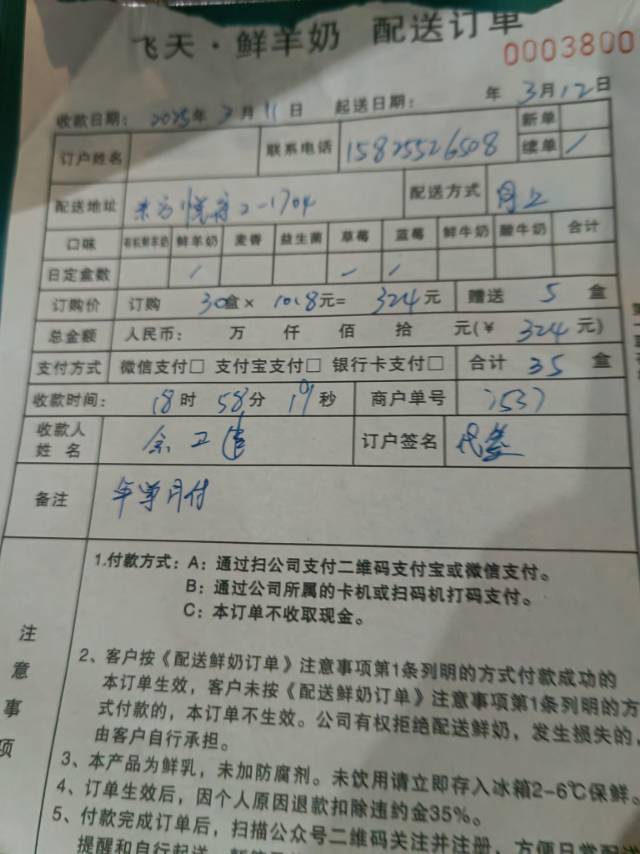 飞天·鲜羊奶 配送订单
0003800
收款日期: 2025年 3月 11日 起送日期: 年 3月12日
订户姓名 联系电话 15825526508 新单
续单 /
配送地址 东方悦府2-1704 配送方式 月上
口味 有机鲜羊奶 鲜羊奶 麦香 益生菌 草莓 蓝莓 鲜牛奶 酸牛奶 合计
日定盒数 / / /
订购价 订购 30盒× 10.8元= 324元 赠送 5 盒
总金额 人民币: 万 仟 佰 拾 元(¥ 324元)
支付方式 微信支付□ 支付宝支付□ 银行卡支付□ 合计 35 盒
收款时间: 18时 58分 19秒 商户单号 7537
收款人 余卫
姓名 订户签名 代签
备注 年单月付
注意事项
1.付款方式: A: 通过扫公司支付二维码支付宝或微信支付。
B: 通过公司所属的卡机或扫码机打码支付。
C: 本订单不收取现金。
2、客户按《配送鲜奶订单》注意事项第1条列明的方式付款成功的
本订单生效，客户未按《配送鲜奶订单》注意事项第1条列明的方
式付款的，本订单不生效。公司有权拒绝配送鲜奶，发生损失的，
由客户自行承担。
3、本产品为鲜乳，未加防腐剂。未饮用请立即存入冰箱2-6℃保鲜。
4、订单生效后，因个人原因退款扣除违约金35%。
5、付款完成订单后，扫描公众号二维码关注并注册，方便日常配送
提醒和自行起送